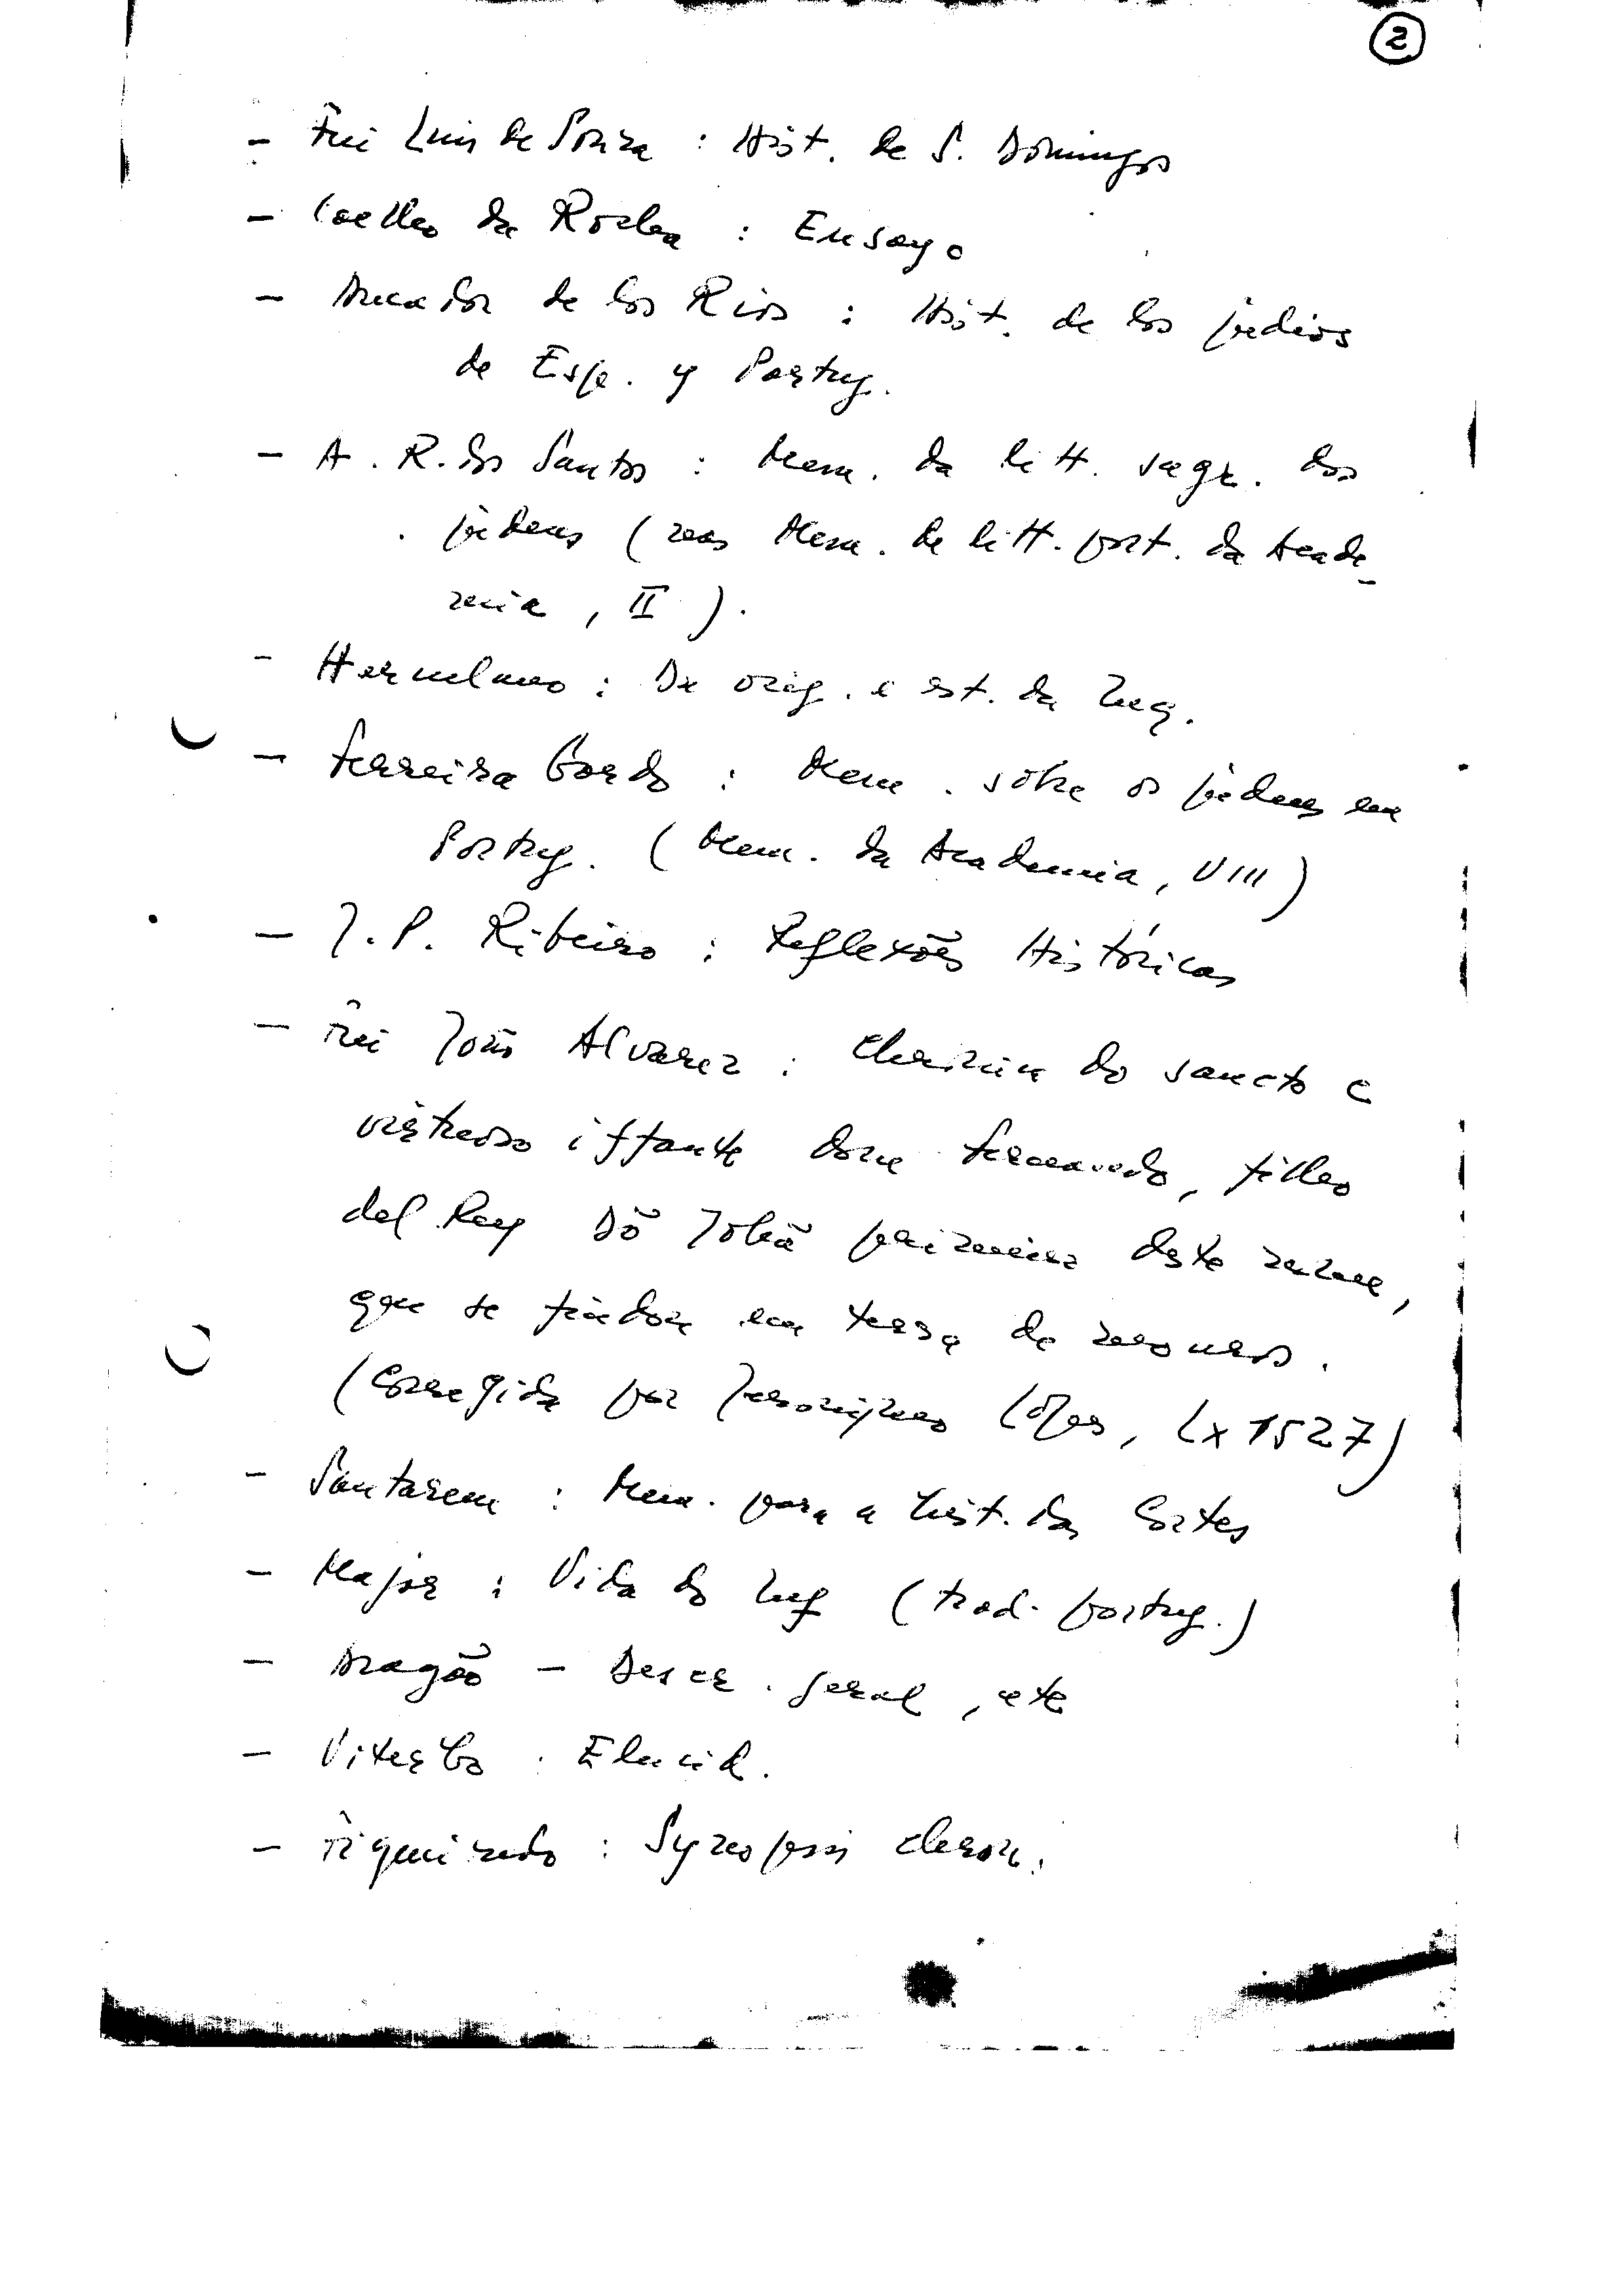 2
- Frei Luis de Souza : Hist. de S. Domingos
- Coelho da Rocha : Ensayo
- Amador de los Rios : Hist. de los judios
de Esp. y Portug.
- A. R. dos Santos : Mem. da litt. sagr. dos
judeus (nas Mem. de litt. port. da Acade-
mia, II).
- Herculano : Da orig. e est. da Inq.
- Ferreira Gordo : Mem. sobre os judeus em
Portug. (Mem. da Academia, VIII)
- J. P. Ribeiro : Reflexões Históricas
- Frei João Alvarez : Chronica do sancto e
virtuoso iffante dom Fernando, filho
del Rey Dõ Johã primeiro deste nome,
que se findou em terra de mouros.
(Corregida por Jeronijmo Lopes, Lx 1527)
- Santarem : Mem. para a hist. das Cortes
- Major : Vida do Inf (trad. portug.)
- Aragão - Descr. geral, etc
- Viterbo : Elucid.
- Figueiredo : Synopsis chron.